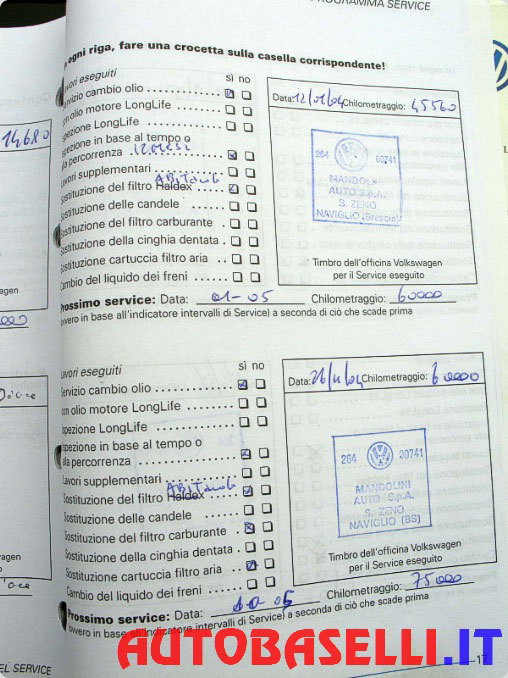 PROGRAMMA SERVICE
ogni riga, fare una crocetta sulla casella corrispondente!
Lavori eseguiti sì no
Servizio cambio olio
con olio motore LongLife
Ispezione LongLife
Ispezione in base al tempo o
alla percorrenza
Lavori supplementari
ABITACOLO
Sostituzione del filtro Haldex
Sostituzione delle candele
Sostituzione del filtro carburante
Sostituzione della cinghia dentata
Sostituzione cartuccia filtro aria
Cambio del liquido dei freni
Data: 12/01/04 Chilometraggio: 45560
264 60741
MANDOLINI
AUTO S.p.A.
S. ZENO
NAVIGLIO (Brescia)
Timbro dell'officina Volkswagen
per il Service eseguito
Prossimo service: Data: 01-05 Chilometraggio: 60000
(ovvero in base all'indicatore intervalli di Service) a seconda di ciò che scade prima
Lavori eseguiti sì no
Servizio cambio olio
con olio motore LongLife
Ispezione LongLife
Ispezione in base al tempo o
alla percorrenza
Lavori supplementari
ABITACOLO
Sostituzione del filtro Haldex
Sostituzione delle candele
Sostituzione del filtro carburante
Sostituzione della cinghia dentata
Sostituzione cartuccia filtro aria
Cambio del liquido dei freni
Data: Chilometraggio: 60000
264 30741
MANDOLINI
AUTO S.p.A.
S. ZENO
NAVIGLIO (BS)
Timbro dell'officina Volkswagen
per il Service eseguito
Prossimo service: Data: 10-05 Chilometraggio: 75000
(ovvero in base all'indicatore intervalli di Service) a seconda di ciò che scade prima
17
14680
wagen
wagen
EL SERVICE
AUTOBASELLI.IT